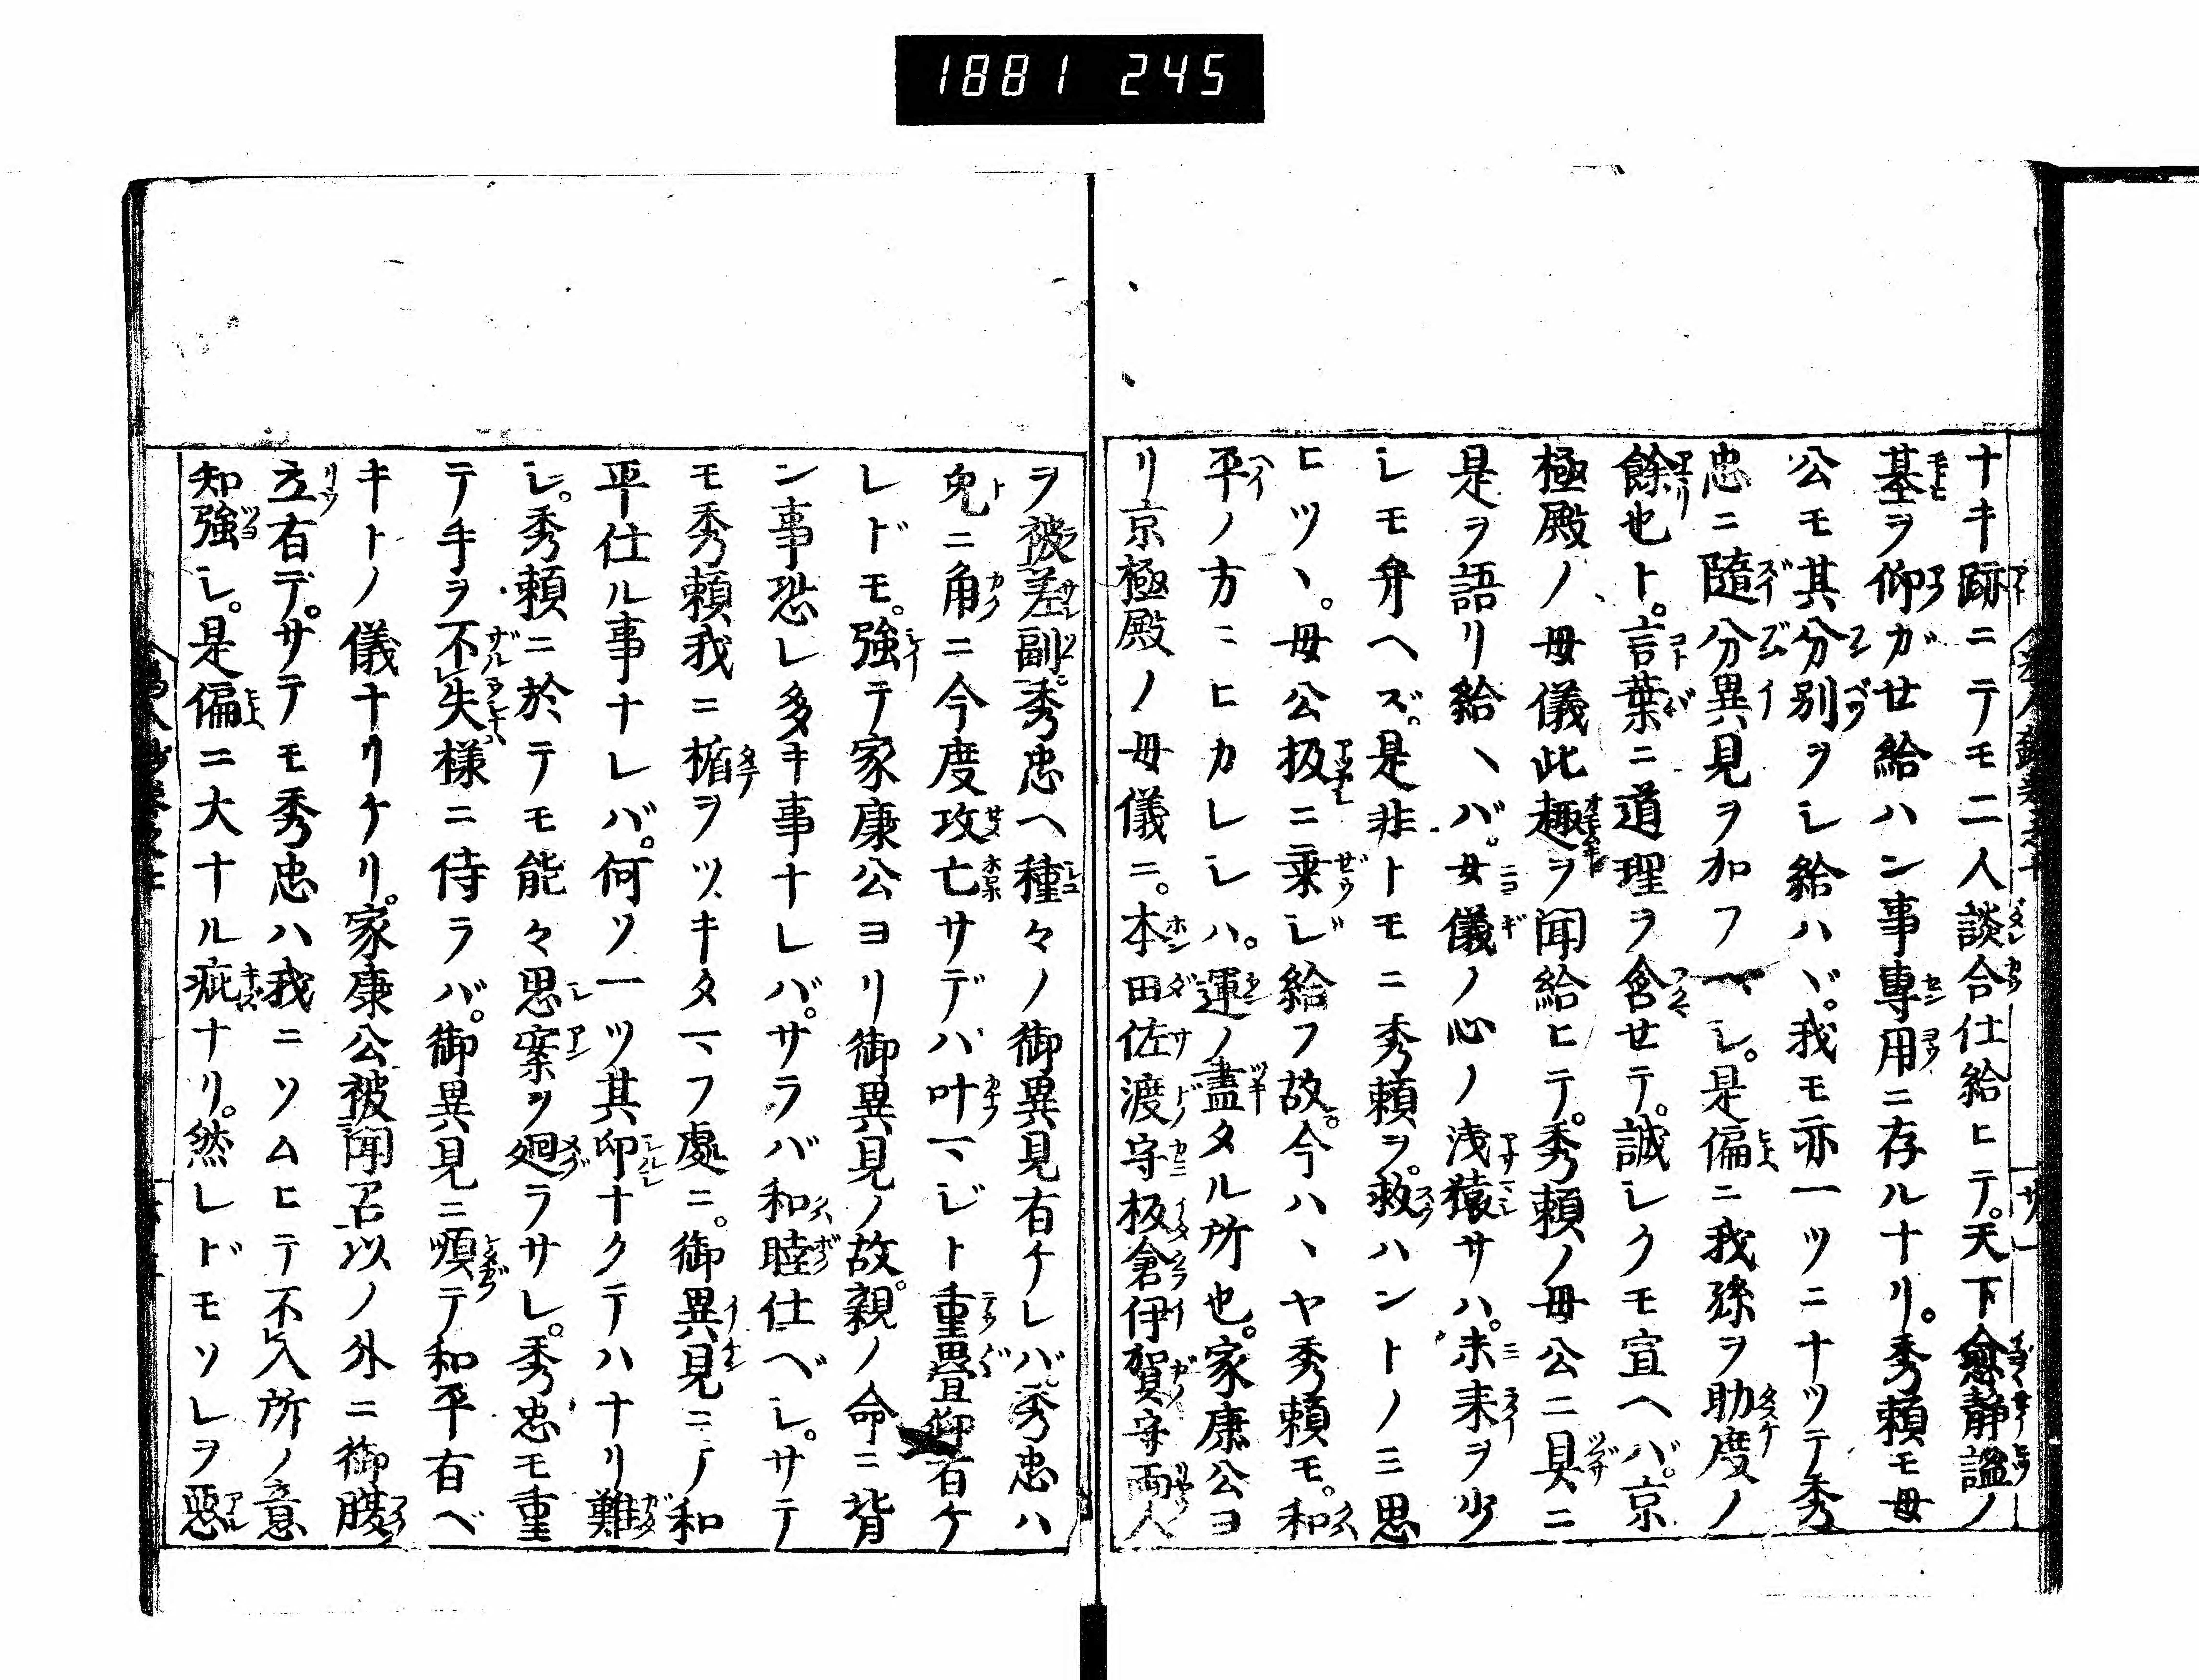 1881 245
ナキ跡ニテモ二人談合仕給ヒテ。天下愈静謐ノ
基ヲ仰ガせ給ハン事專用ニ存ルナリ。秀頼モ母
公モ其分別ヲシ給ハヾ。我モ亦一ツニナツテ秀
忠ニ隨分異見ヲ加フヘシ。是偏ニ我孫ヲ助度ノ
餘也ト。言葉ニ道理ヲ含せテ。誠シクモ宣ヘバ。京
極殿ノ母儀此趣ヲ聞給ヒテ。秀頼ノ母公ニ具ニ
是ヲ語リ給ヘバ。女儀ノ心ノ浅猿サハ。未来ヲ少
シモ弁ヘズ。是非トモニ秀頼ヲ。救ハントノミ思
ヒツヽ。母公扱ニ乗ジ給フ故。今ハヽヤ秀頼モ。和
平ノ方ニヒカレシハ。運ノ盡タル所也。家康公ヨ
リ京極殿ノ母儀ニ。本田佐渡守板倉伊賀守両人
ヲ被差副。秀忠ヘ種々ノ御異見有ケレバ。秀忠ハ
兔ニ角ニ今度攻亡サデハ叶マジト重畳仰有ケ
レドモ。強テ家康公ヨリ御異見ノ故。親ノ命ニ背
ン事恐レ多キ事ナレバ。サラバ和睦仕ベシ。サテ
モ秀頼我ニ楯ヲツキタマフ處ニ。御異見ニテ和
平仕ル事ナレバ。何ソ一ツ其印ナクテハナリ難
シ。秀頼ニ於テモ能々思案ヲ廻ラサレ。秀忠モ重
テ手ヲ不失様ニ侍ラバ。御異見ニ順テ和平有ベ
キトノ儀ナリケリ。家康公被聞召以ノ外ニ御腹
立有デ。サテモ秀忠ハ我ニソムヒテ不入所ノ意
知強シ。是偏ニ大ナル疵ナリ。然レドモソレヲ惡